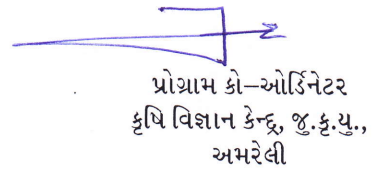 પ્રોગ્રામ કો–ઓર્ડિનેટર
કૃષિ વિજ્ઞાન કેન્દ્ર, જુ.કૃ.યુ.,
અમરેલી